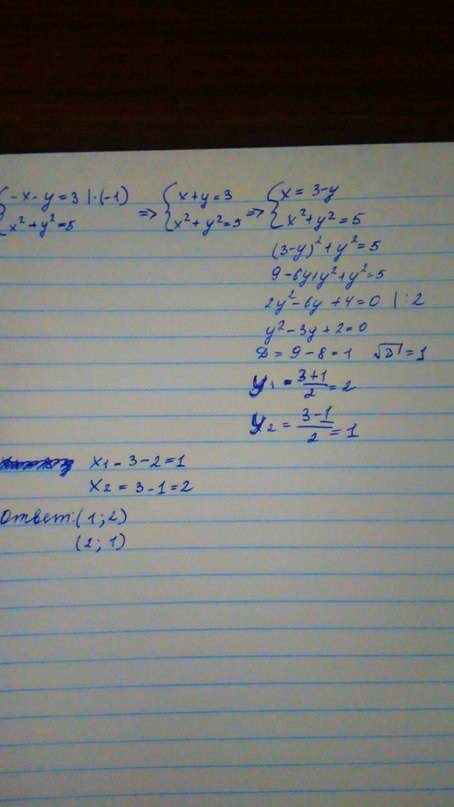 {-x-y=3 |·(-1) => {x+y=3 => {x=3-y
{x²+y²=5 {x²+y²=5 {x²+y²=5
(3-y)²+y²=5
9-6y+y²+y²=5
2y²-6y+4=0 | :2
y²-3y+2=0
D=9-8=1 √D=1
y₁=\frac{3+1}{2}=2
y₂=\frac{3-1}{2}=1
x₁-3-2=1
x₂=3-1=2
Ответ:(1;2)
(2;1)